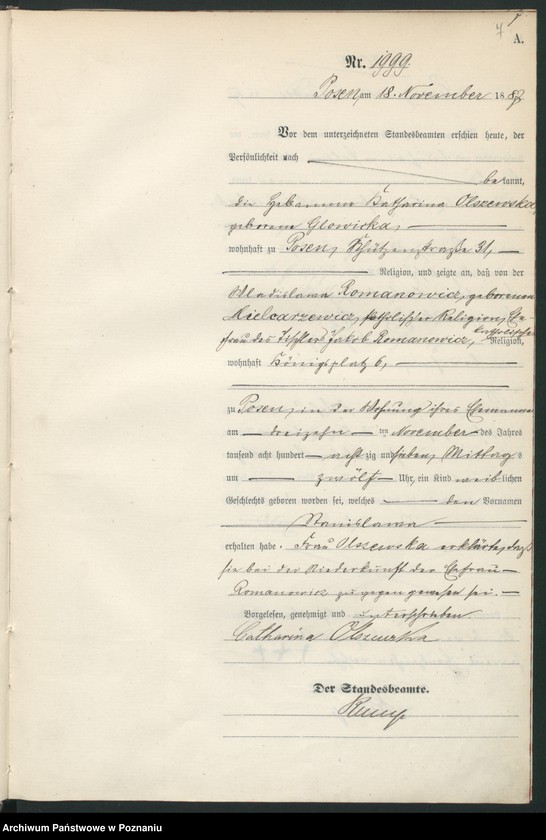 7
A.
Nr. 1999.
Posen, am 18. November 1887
Vor dem unterzeichneten Standesbeamten erschien heute, der
Persönlichkeit nach
bekannt,
die Hebamme Katharina Olszewska,
geborene Glowicka,
wohnhaft zu Posen, Schützenstraße 31,
Religion, und zeigte an, daß von der
Wladislawa Romanowicz, geborenen
Mielcarzewicz, katholischer Religion, Ehe-
frau des Tischlers Jakob Romanowicz, katholischer Religion,
wohnhaft Königsplatz 6,
zu Posen, in der Wohnung ihres Ehemannes
am dreizehn ten November des Jahres
tausend acht hundert achtzig und sieben, Mittags
um zwölf Uhr, ein Kind weiblichen
Geschlechts geboren worden sei, welches den Vornamen
Stanislawa
erhalten habe. Frau Olszewska erklärte, daß
sie bei der Niederkunft der Ehefrau
Romanowicz zugegen gewesen sei.
Vorgelesen, genehmigt und unterschrieben.
Catharina Olszewska
Der Standesbeamte.
Archiwum Państwowe w Poznaniu